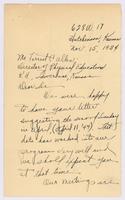 628 W 17
Hutchinson, Kansas
Nov. 15, 1934
Mr. Forrest C. Allen
Director of Physical Education
K.U., Lawrence, Kansas
Dear Sir:
We were happy
to have your letter
suggesting the second Sunday
in April (April 11, 49). That
date has worked into our
program very well and
we should expect you
at that time.
Our meetings are